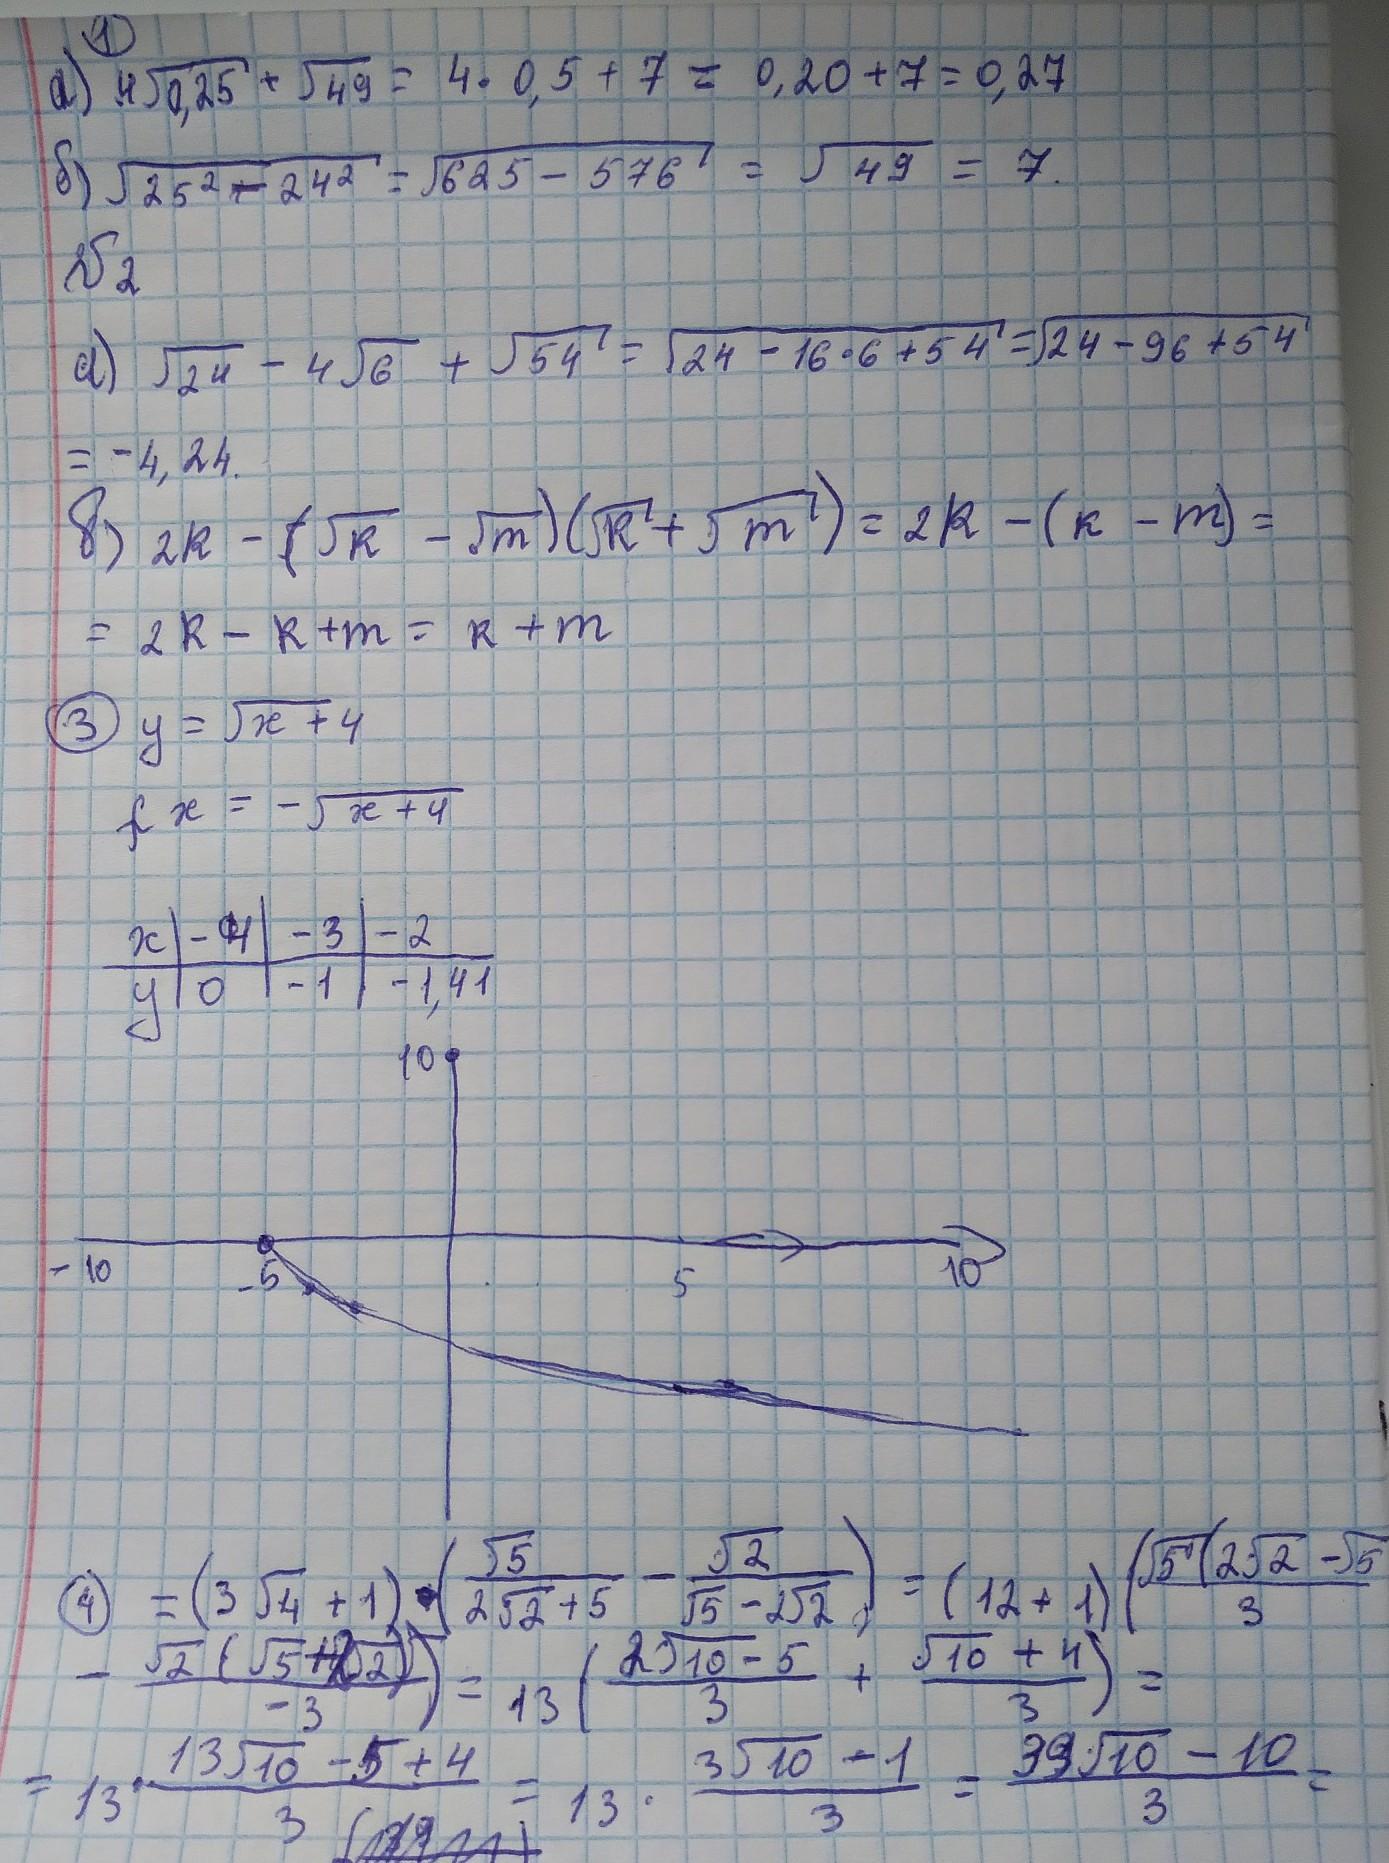 1
а) 4√0,25 + √49 = 4 · 0,5 + 7 = 0,20 + 7 = 0,27
б) √25² - 24² = √625 - 576 = √49 = 7.
№2
а) √24 - 4√6 + √54 = √24 - 16·6 + 54 = √24 - 96 + 54
= -4,24.
в) 2k - (√k - √m)(√k + √m) = 2k - (k - m) =
= 2k - k + m = k + m
3 y = √x + 4
f x = -√x + 4
x | -4 | -3 | -2
y | 0 | -1 | -1,41
10
-10 -5 5 10
4 = (3√4 + 1) · (√5/2√2 + 5 - √2/√5 - 2√2) = (12 + 1)(√5(2√2 - √5/3
- √2(√5+2√2)/-3) = 13(2√10 - 5/3 + √10 + 4/3) =
= 13 · 13√10 - 5 + 4/3 = 13 · 3√10 - 1/3 = 39√10 - 10/3 =